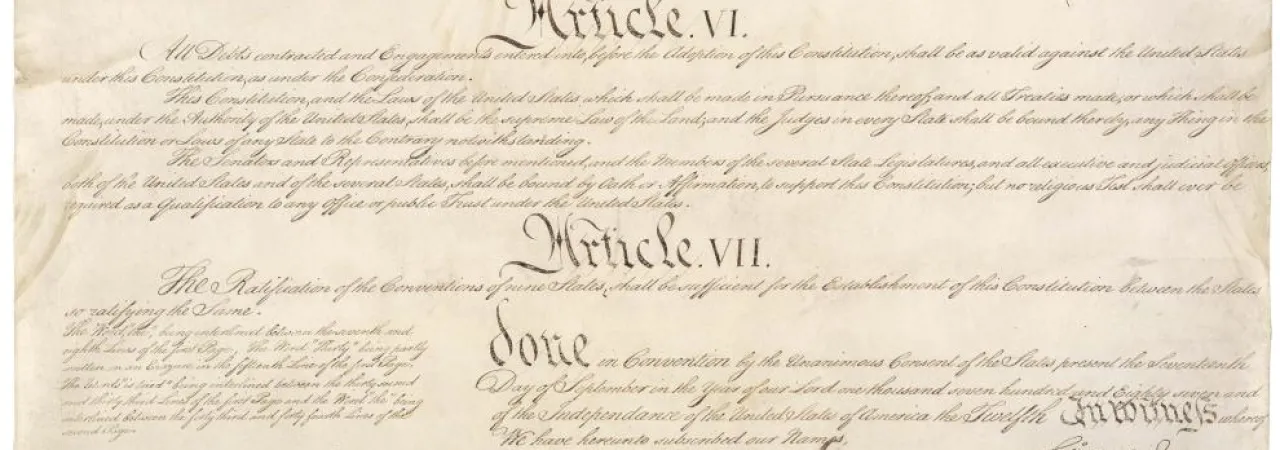 Article. VI.
All Debts contracted and Engagements entered into, before the Adoption of this Constitution, shall be as valid against the United States
under this Constitution, as under the Confederation.
This Constitution, and the Laws of the United States which shall be made in Pursuance thereof; and all Treaties made, or which shall be
made, under the Authority of the United States, shall be the supreme Law of the Land; and the Judges in every State shall be bound thereby, any Thing in the
Constitution or Laws of any State to the Contrary notwithstanding.
The Senators and Representatives before mentioned, and the Members of the several State Legislatures, and all executive and judicial Officers,
both of the United States and of the several States, shall be bound by Oath or Affirmation, to support this Constitution; but no religious Test shall ever be
required as a Qualification to any Office or public Trust under the United States.
Article. VII.
The Ratification of the Conventions of nine States, shall be sufficient for the Establishment of this Constitution between the States
so ratifying the Same.
The Word, "the," being interlined between the seventh and
eighth Lines of the first Page, The Word "Thirty" being partly
written on an Erazure in the fifteenth Line of the first Page,
The Words "is tried" being interlined between the thirty second
and thirty third Lines of the first Page and the Word "the" being
interlined between the forty third and forty fourth Lines of the
second Page.
done in Convention by the Unanimous Consent of the States present the Seventeenth
Day of September in the Year of our Lord one thousand seven hundred and Eighty seven and
of the Independance of the United States of America the Twelfth In Witness whereof
We have hereunto subscribed our Names,